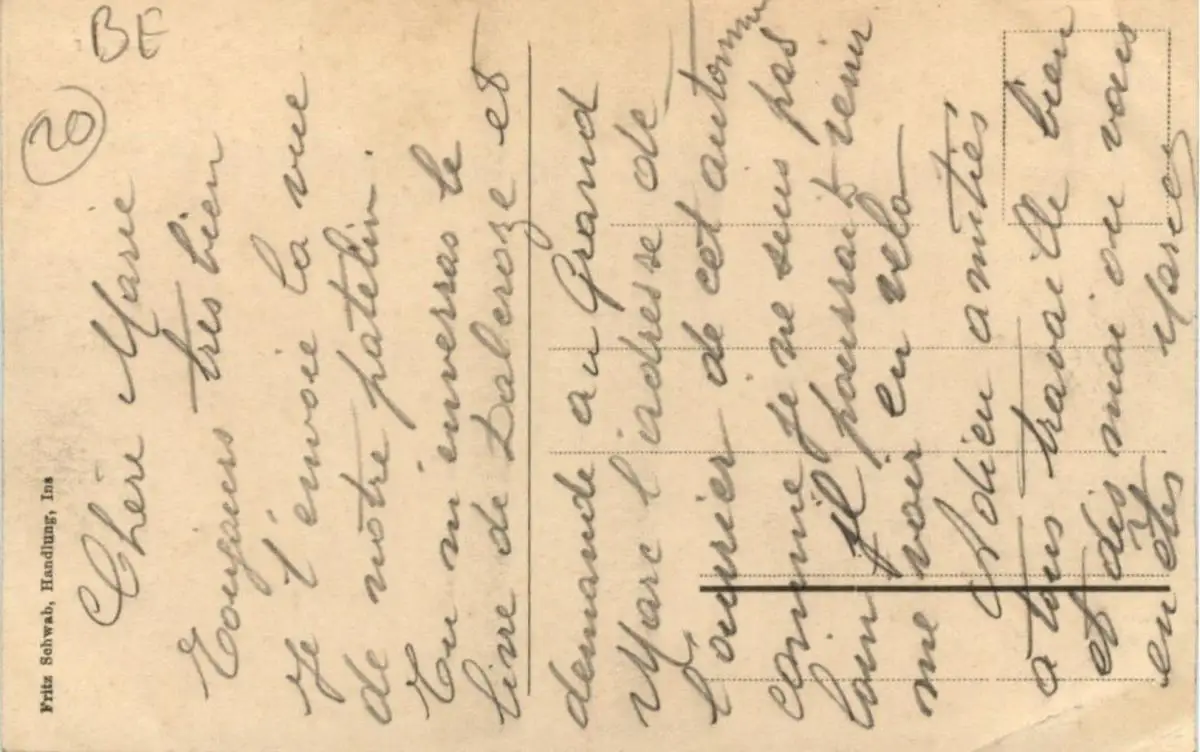 BE
20
Fritz Schwab, Handlung, Ins
Chère Marie
Toujours très bien
Je t'envoie la vue
de notre patelin.
Tu m'enverras le
livre de Dalcroze et
demande au Grand
Marc l'adresse de
l'ouvrier de cet automne
comme je ne suis pas
loin il pourrait venir
me voir en velo
Adieu amitiés
a tous travaille bien
et dis moi ou vous
en êtes Marc